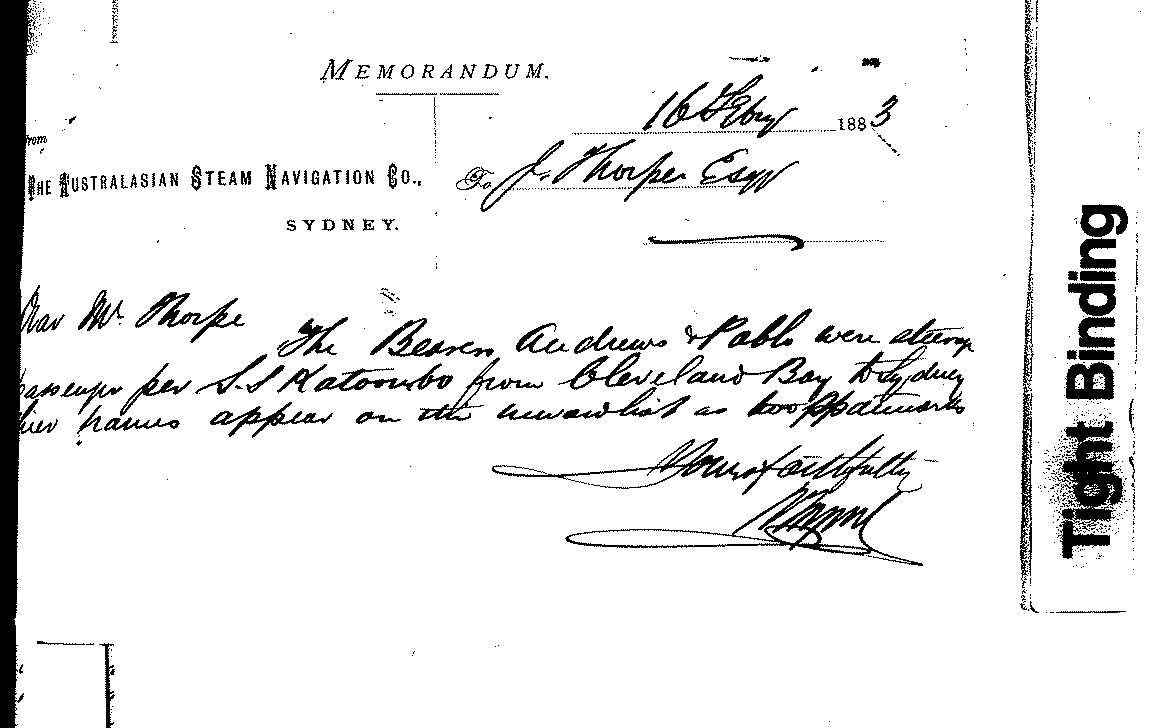 MEMORANDUM.
16 Feby 1883
From
THE AUSTRALASIAN STEAM NAVIGATION CO.,
To J. Thorpe Esqr
SYDNEY.
Dear Mr. Thorpe
The Bearers Andrews & Pablo were steerage
passengers per S.S Katoomba from Cleveland Bay to Sydney
their names appear on the list as two
Yours faithfully
Tight Binding